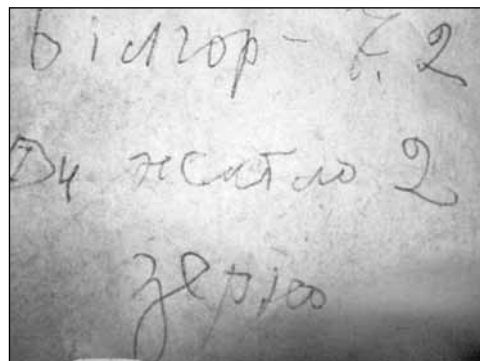 Білгор - 2
житло 2
зерно